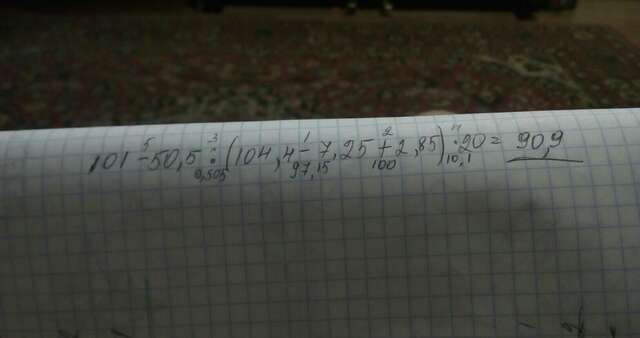 5 3 1 2 4
101 - 50,5 : (104,4 - 7,25 + 2,85) · 20 = 90,9
0,505 97,15 100 10,1